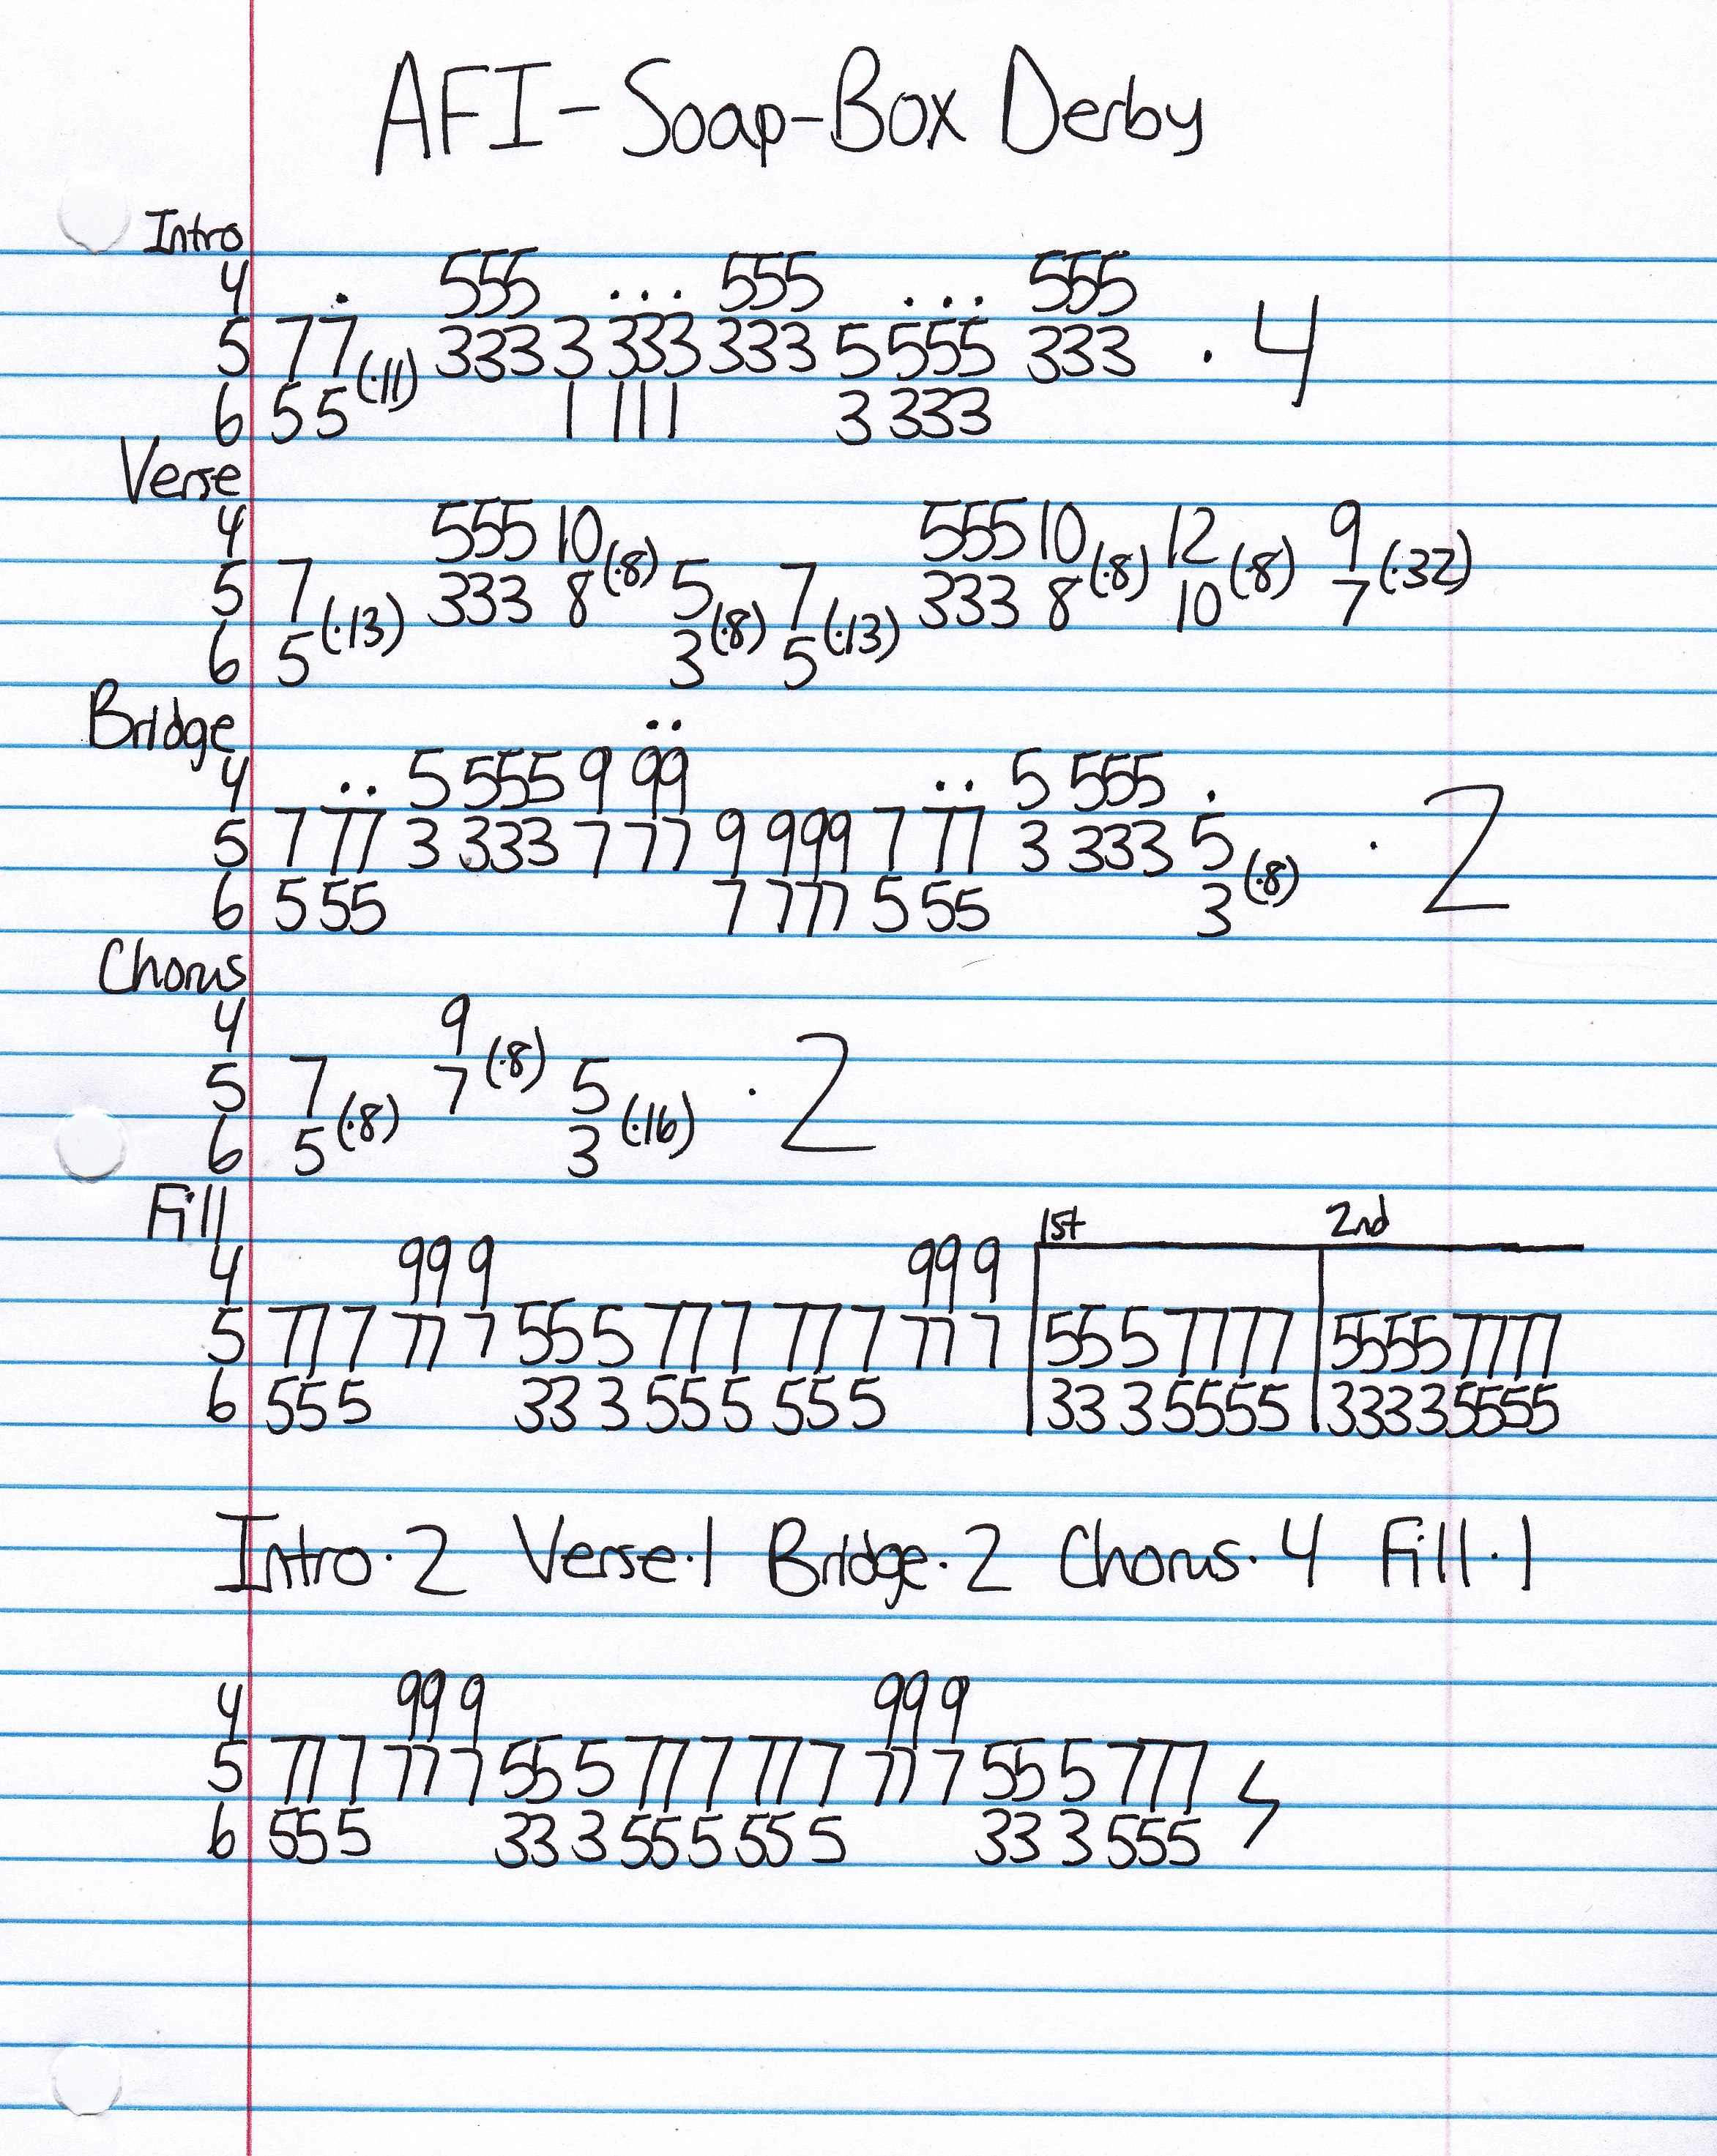 AFI - Soap-Box Derby
Intro
4 . 555 ... 555 ... 555
5 77 (·11) 333 3 333 333 5 555 333 · 4
6 55 1 111 3 333
Verse
4 555 10 (·8) 555 10 (·8) 12 (·8) 9 (·32)
5 7 (·13) 333 8 5 (·8) 7 (·13) 333 8 10 7
6 5 3 5
Bridge
..
4 .. 5 555 9 99 .. 5 555 .
5 7 77 3 333 7 77 9 999 7 77 3 333 5 (·8) · 2
6 5 55 7 777 5 55 3
Chorus
4 9 (·8)
5 7 (·8) 7 5 (·16) · 2
6 5 3
Fill 1st 2nd
4 99 9 99 9
5 77 7 77 7 55 5 77 7 77 7 77 7 55 5 7777 5555 7777
6 55 5 33 3 55 5 55 5 33 3 5555 3333 5555
Intro·2 Verse·1 Bridge·2 Chorus·4 Fill·1
4 99 9 99 9
5 77 7 77 7 55 5 77 7 77 7 77 7 55 5 777
6 55 5 33 3 55 5 55 5 33 3 555